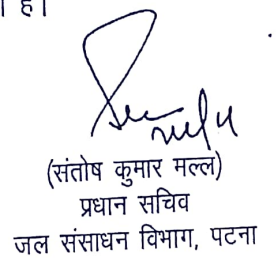 । है।
(संतोष कुमार मल्ल)
प्रधान सचिव
जल संसाधन विभाग, पटना